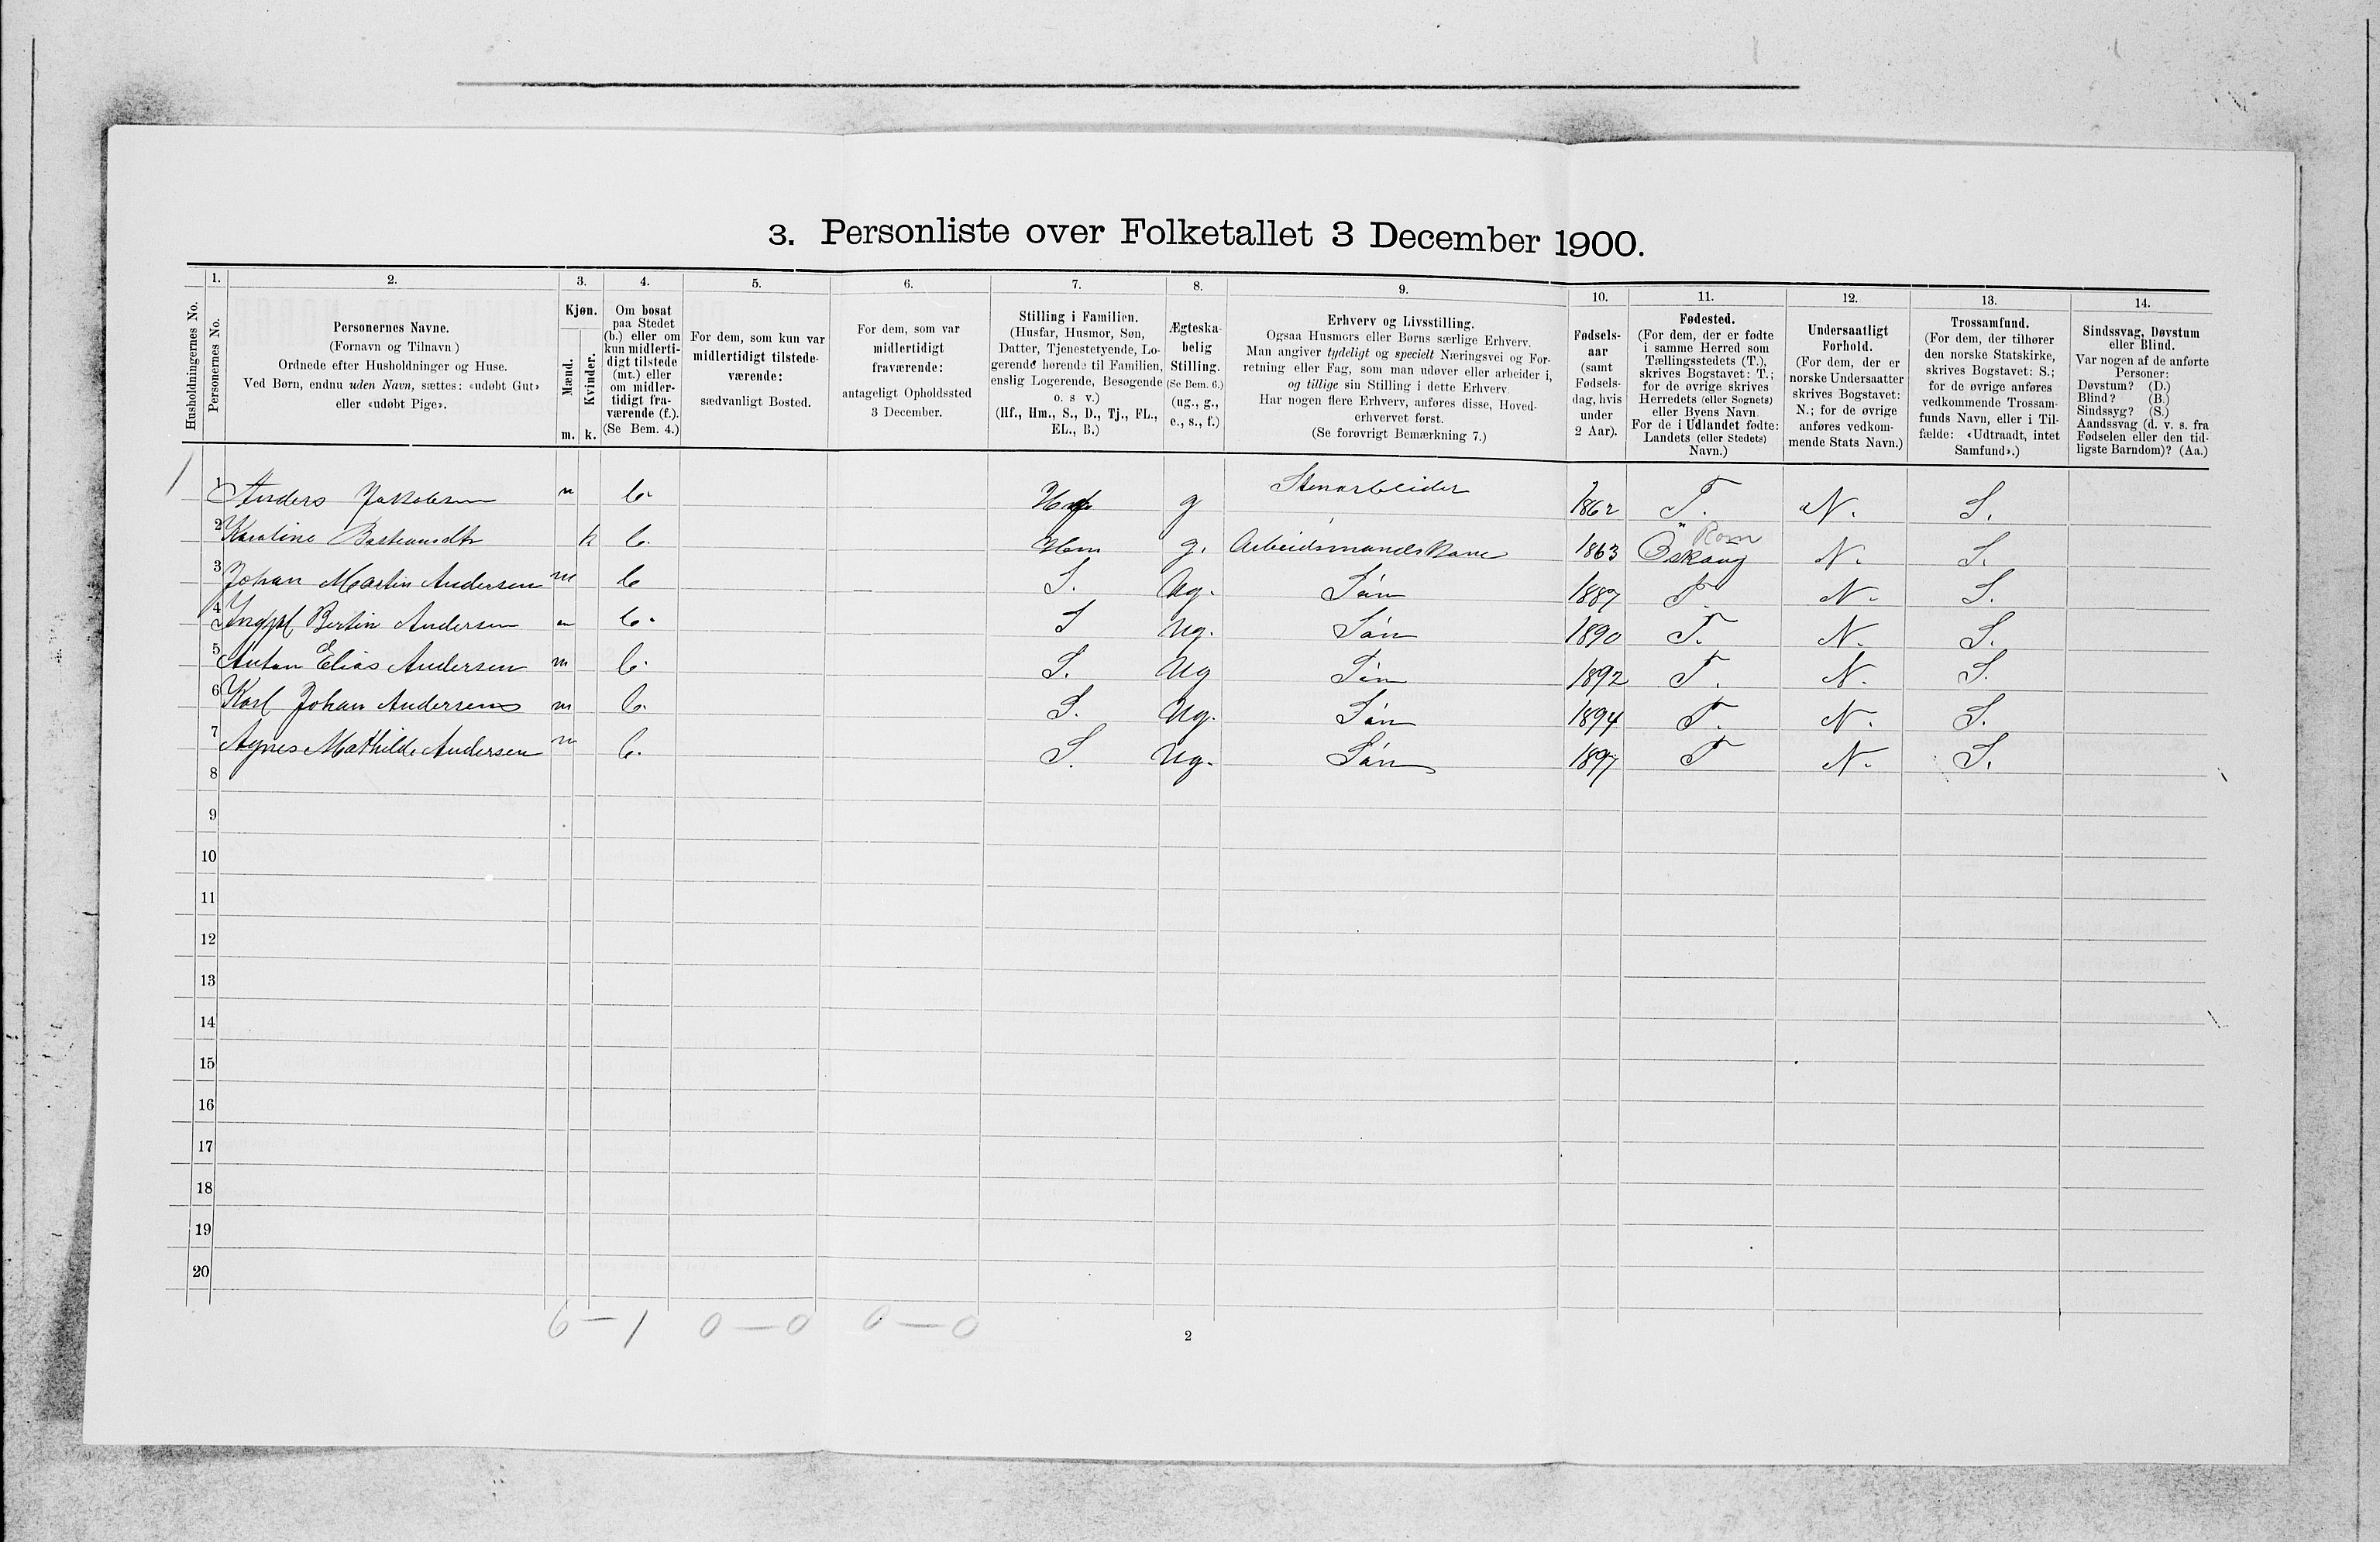 3. Personliste over Folketallet 3 December 1900.
Husholdningernes No.
1. Personernes No.
2. Personernes Navne.
(Fornavn og Tilnavn )
Ordnede efter Husholdninger og Huse.
Ved Børn, endnu uden Navn, sættes: «udøbt Gut»
eller «udøbt Pige».
3. Kjøn.
Mænd. m.
Kvinder. k.
4. Om bosat
paa Stedet
(b.) eller om
kun midlerti-
digt tilstede
(mt.) eller
om midler-
tidigt fra-
værende (f.).
(Se Bem. 4.)
5. For dem, som kun var
midlertidigt tilstede-
værende:
sædvanligt Bosted.
6. For dem, som var
midlertidigt
fraværende:
antageligt Opholdssted
3 December.
7. Stilling i Familien.
(Husfar, Husmor, Søn,
Datter, Tjenestetyende, Lo-
gerende hørende til Familien,
enslig Logerende, Besøgende
o. s v.)
(Hf., Hm., S., D., Tj., FL.,
EL., B.)
8. Ægteska-
belig
Stilling.
(Se Bem. 6.)
(ug., g.,
e., s., f.)
9. Erhverv og Livsstilling.
Ogsaa Husmors eller Børns særlige Erhverv.
Man angiver tydeligt og specielt Næringsvei og For-
retning eller Fag, som man udøver eller arbeider i,
og tillige sin Stilling i dette Erhverv.
Har nogen flere Erhverv, anføres disse, Hoved-
erhvervet først.
(Se forøvrigt Bemærkning 7.)
10. Fødsels-
aar
(samt
Fødsels-
dag, hvis
under
2 Aar).
11. Fødested.
(For dem, der er fødte
i samme Herred som
Tællingsstedets (T.),
skrives Bogstavet: T.;
for de øvrige skrives
Herredets (eller Sognets)
eller Byens Navn.
For de i Udlandet fødte:
Landets (eller Stedets)
Navn.)
12. Undersaatligt
Forhold.
(For dem, der er
norske Undersaatter
skrives Bogstavet:
N.; for de øvrige
anføres vedkom-
mende Stats Navn.)
13. Trossamfund.
(For dem, der tilhører
den norske Statskirke,
skrives Bogstavet: S.;
for de øvrige anføres
vedkommende Trossam-
funds Navn, eller i Til-
fælde: «Udtraadt, intet
Samfund».)
14. Sindssvag, Døvstum
eller Blind.
Var nogen af de anførte
Personer:
Døvstum? (D.)
Blind? (B.)
Sindssyg? (S.)
Aandssvag (d. v. s. fra
Fødselen eller den tid-
ligste Barndom)? (Aa.)
1 1 Anders Jakobsen m b. Hf g Stenarbeider 1862 T. N. S.
2 Karoline Bastiansdtr k b. Hm g. Arbeidsmandskone 1863 Øskoug Rom N. S.
3 Johan Martin Andersen m b S. Ug. Søn 1887 T. N. S.
4 Ingolf Bertin Andersen m b. S Ug. Søn 1890 T. N. S.
5 Anton Elias Andersen m b. S. Ug Søn 1892 T. N. S.
6 Karl Johan Andersen m b. S. Ug. Søn 1894 T. N. S.
7 Agnes Mathilde Andersen m b. S. Ug. Søn 1897 T N. S.
8
9
10
11
12
13
14
15
16
17
18
19
20
6 — 1 0 — 0 0 — 0
2